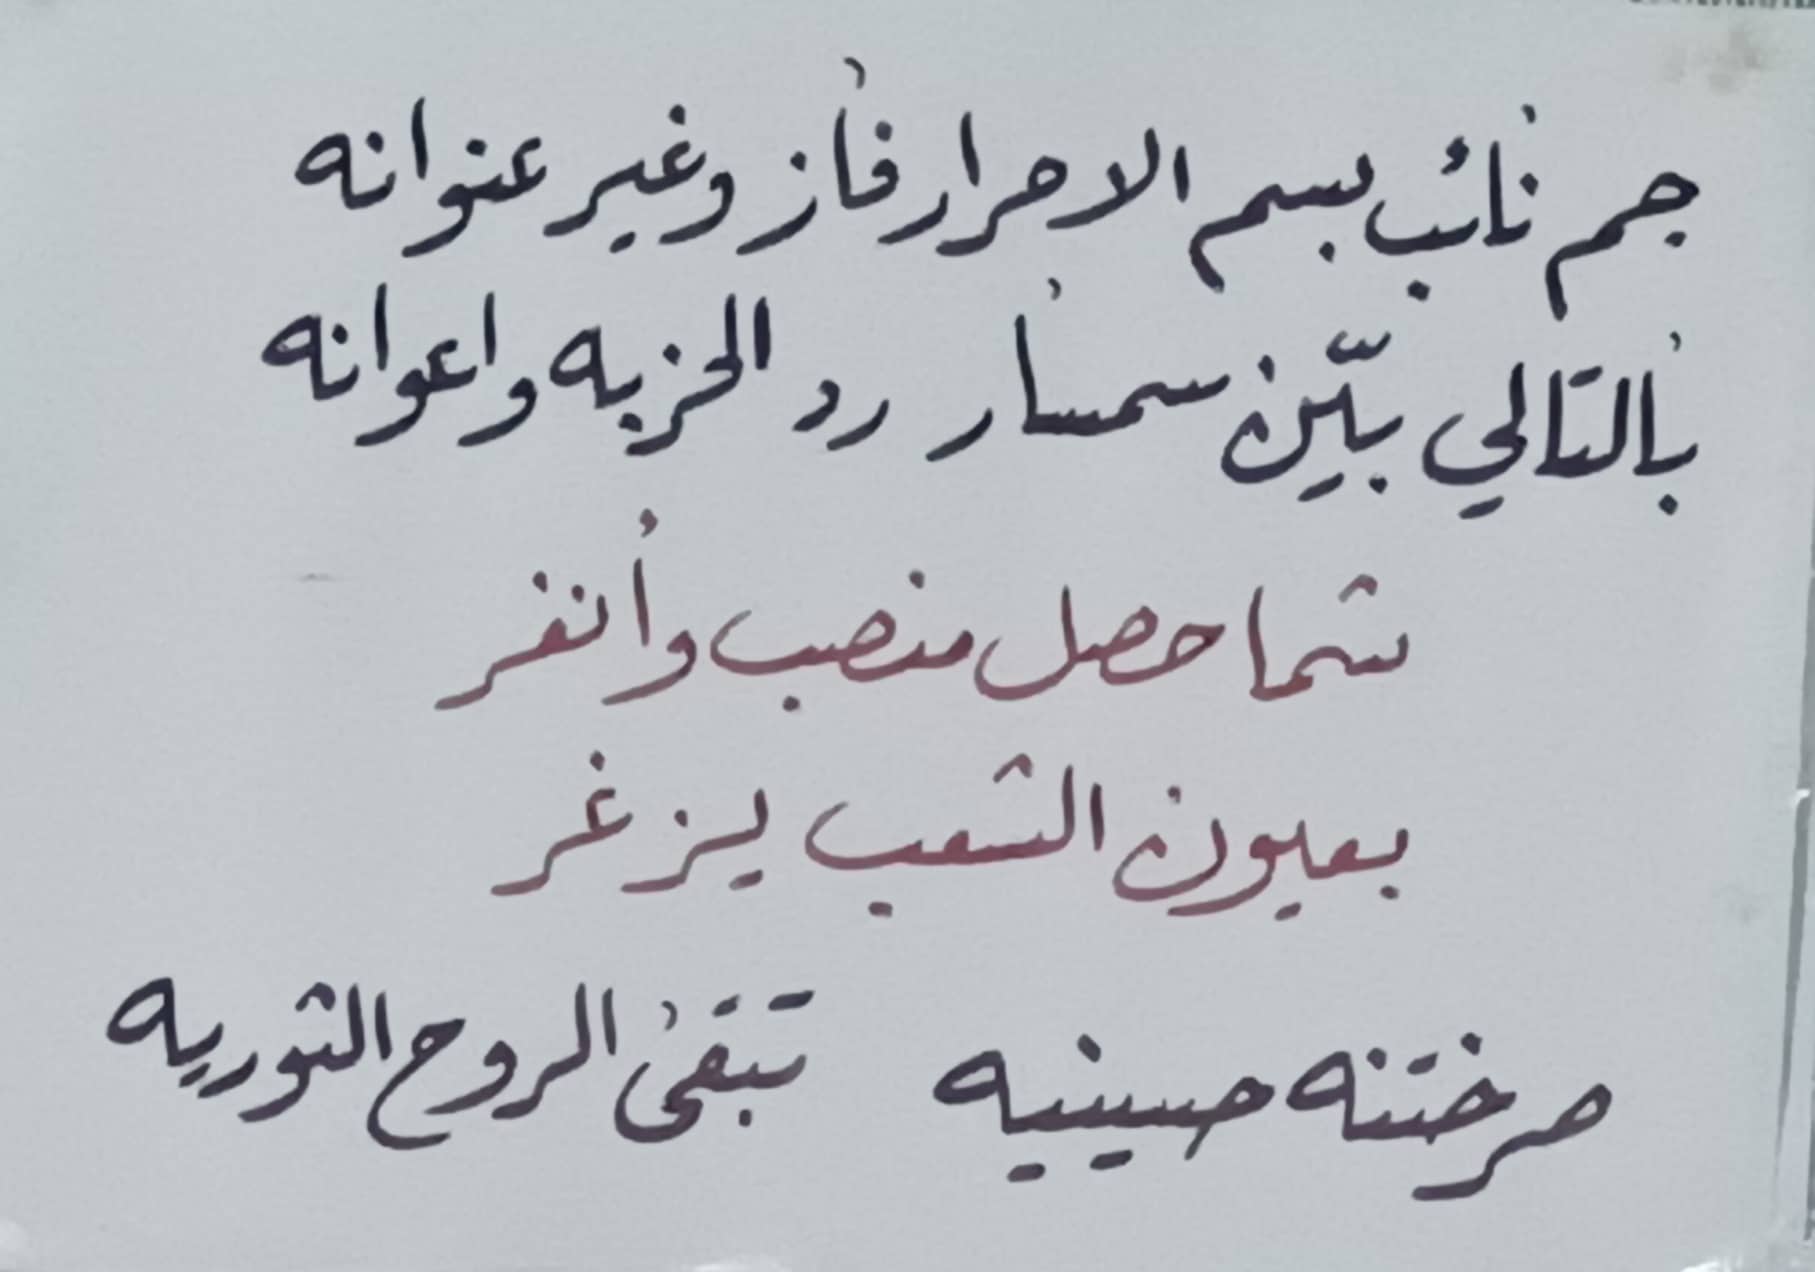 جم نائب بسم الاحرار فاز وغير عنوانه
بالتالي بيّن سمسار رد الحزبه واعوانه
شما حصل منصب وأنفر
بعيون الشعب يزغر
صرختنه حسينيه تبقى الروح الثوريه